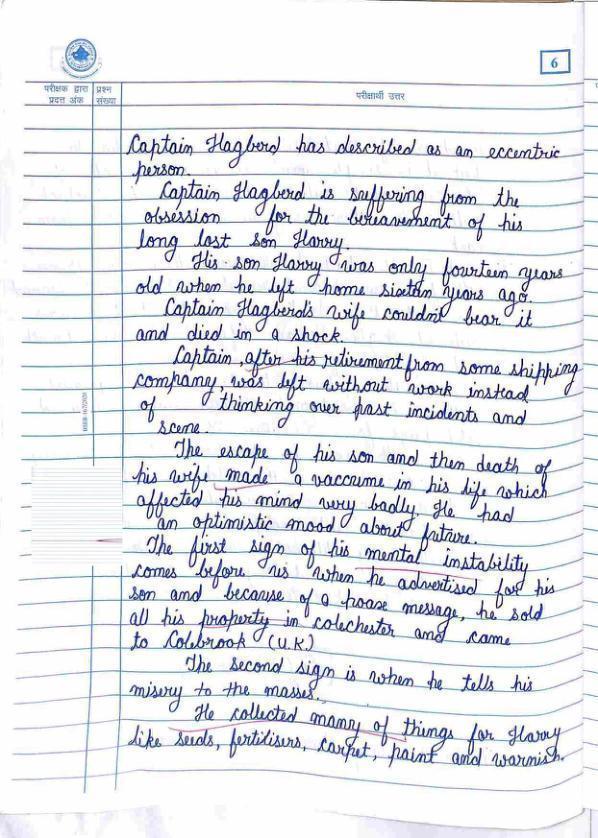 6
परीक्षक द्वारा प्रदत्त अंक
प्रश्न संख्या
परीक्षार्थी उत्तर
Captain Hagberd has described as an eccentric
person.
Captain Hagberd is suffering from the
obsession for the bereavement of his
long lost son Harry.
His son Harry was only fourteen years
old when he left home sixtan years ago.
Captain Hagberd's wife couldn't bear it
and died in a shock.
Captain, after his retirement from some shipping
company, was left without work instead
of thinking over past incidents and
scene.
The escape of his son and then death of
his wife made a vaccume in his life which
affected his mind very badly. He had
an optimistic mood about future.
The first sign of his mental instability
comes before us when he advertised for his
son and because of a hoax message, he sold
all his property in colechester and came
to Colebrook (U.K.)
The second sign is when he tells his
misery to the masses.
He collected many of things for Harry
like seeds, fertilisers, carpet, paint and warnish.